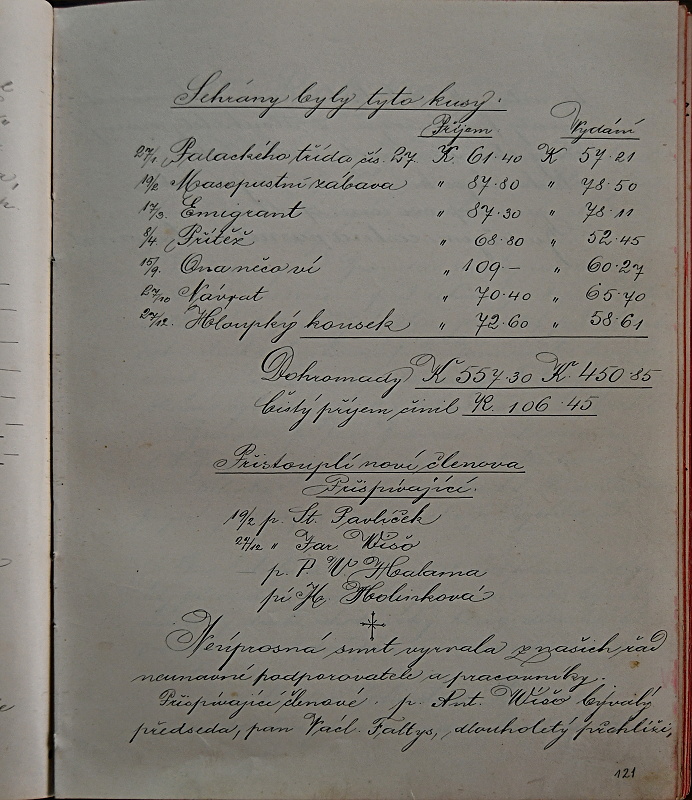 Sehrány byly tyto kusy.
Příjem Vydání
27/1 Palackého třída čís. 27 K. 61·40 K 57·21
19/2 Masopustní zábava " 87·80 " 78·50
17/3. Emigrant " 87·30 " 78·11
8/4. Přítěž " 68·80 " 52·45
15/9. Ona něco ví " 109 – " 60·27
27/10 Návrat " 70·40 " 65·70
27/12. Hloupký kousek " 72·60 " 58·61
Dohromady K 557·30 K. 450·85
čistý příjem činil K. 106·45
Přistouplí noví členova
Přispívající.
19/2 p. St. Pavlíček
27/12 " Jar Wišo
p. P. V Halama
pí H. Holinková
Neúprosná smrt vyrvala z našich řad
neunavní podporovatele a pracovníky.
Přispívající členové. p. Ant. Wišo bývalý
předseda, pan Václ. Faltys, dlouholetý
121